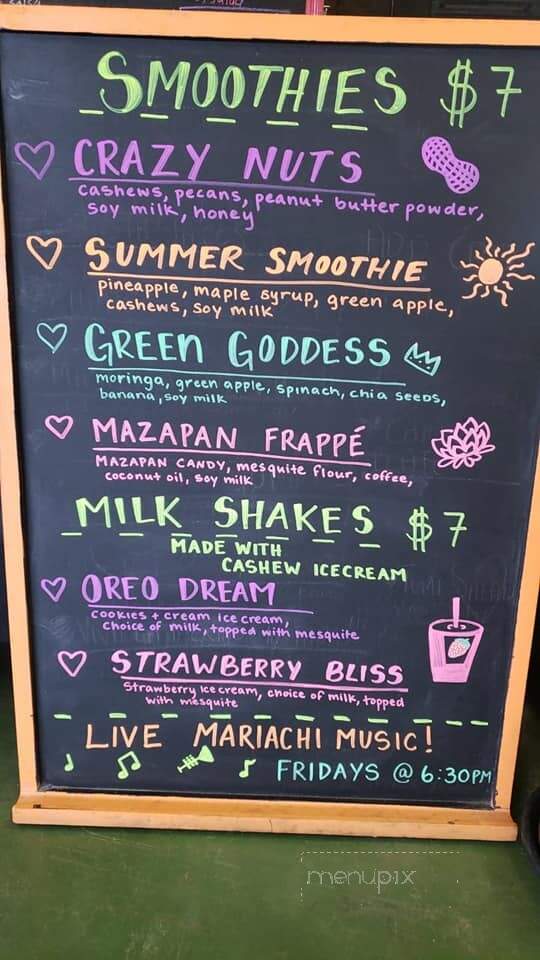 SMOOTHIES $7
CRAZY NUTS
cashews, pecans, peanut butter powder,
soy milk, honey
SUMMER SMOOTHIE
pineapple, maple syrup, green apple,
cashews, soy milk
GREEN GODDESS
moringa, green apple, spinach, chia seeds,
banana, soy milk
MAZAPAN FRAPPÉ
MAZAPAN CANDY, mesquite flour, coffee,
coconut oil, soy milk
MILK SHAKES $7
MADE WITH
CASHEW ICECREAM
OREO DREAM
cookies + cream ice cream,
choice of milk, topped with mesquite
STRAWBERRY BLISS
Strawberry ice cream, choice of milk, topped
with mesquite
LIVE MARIACHI MUSIC!
FRIDAYS @ 6:30PM
menupix